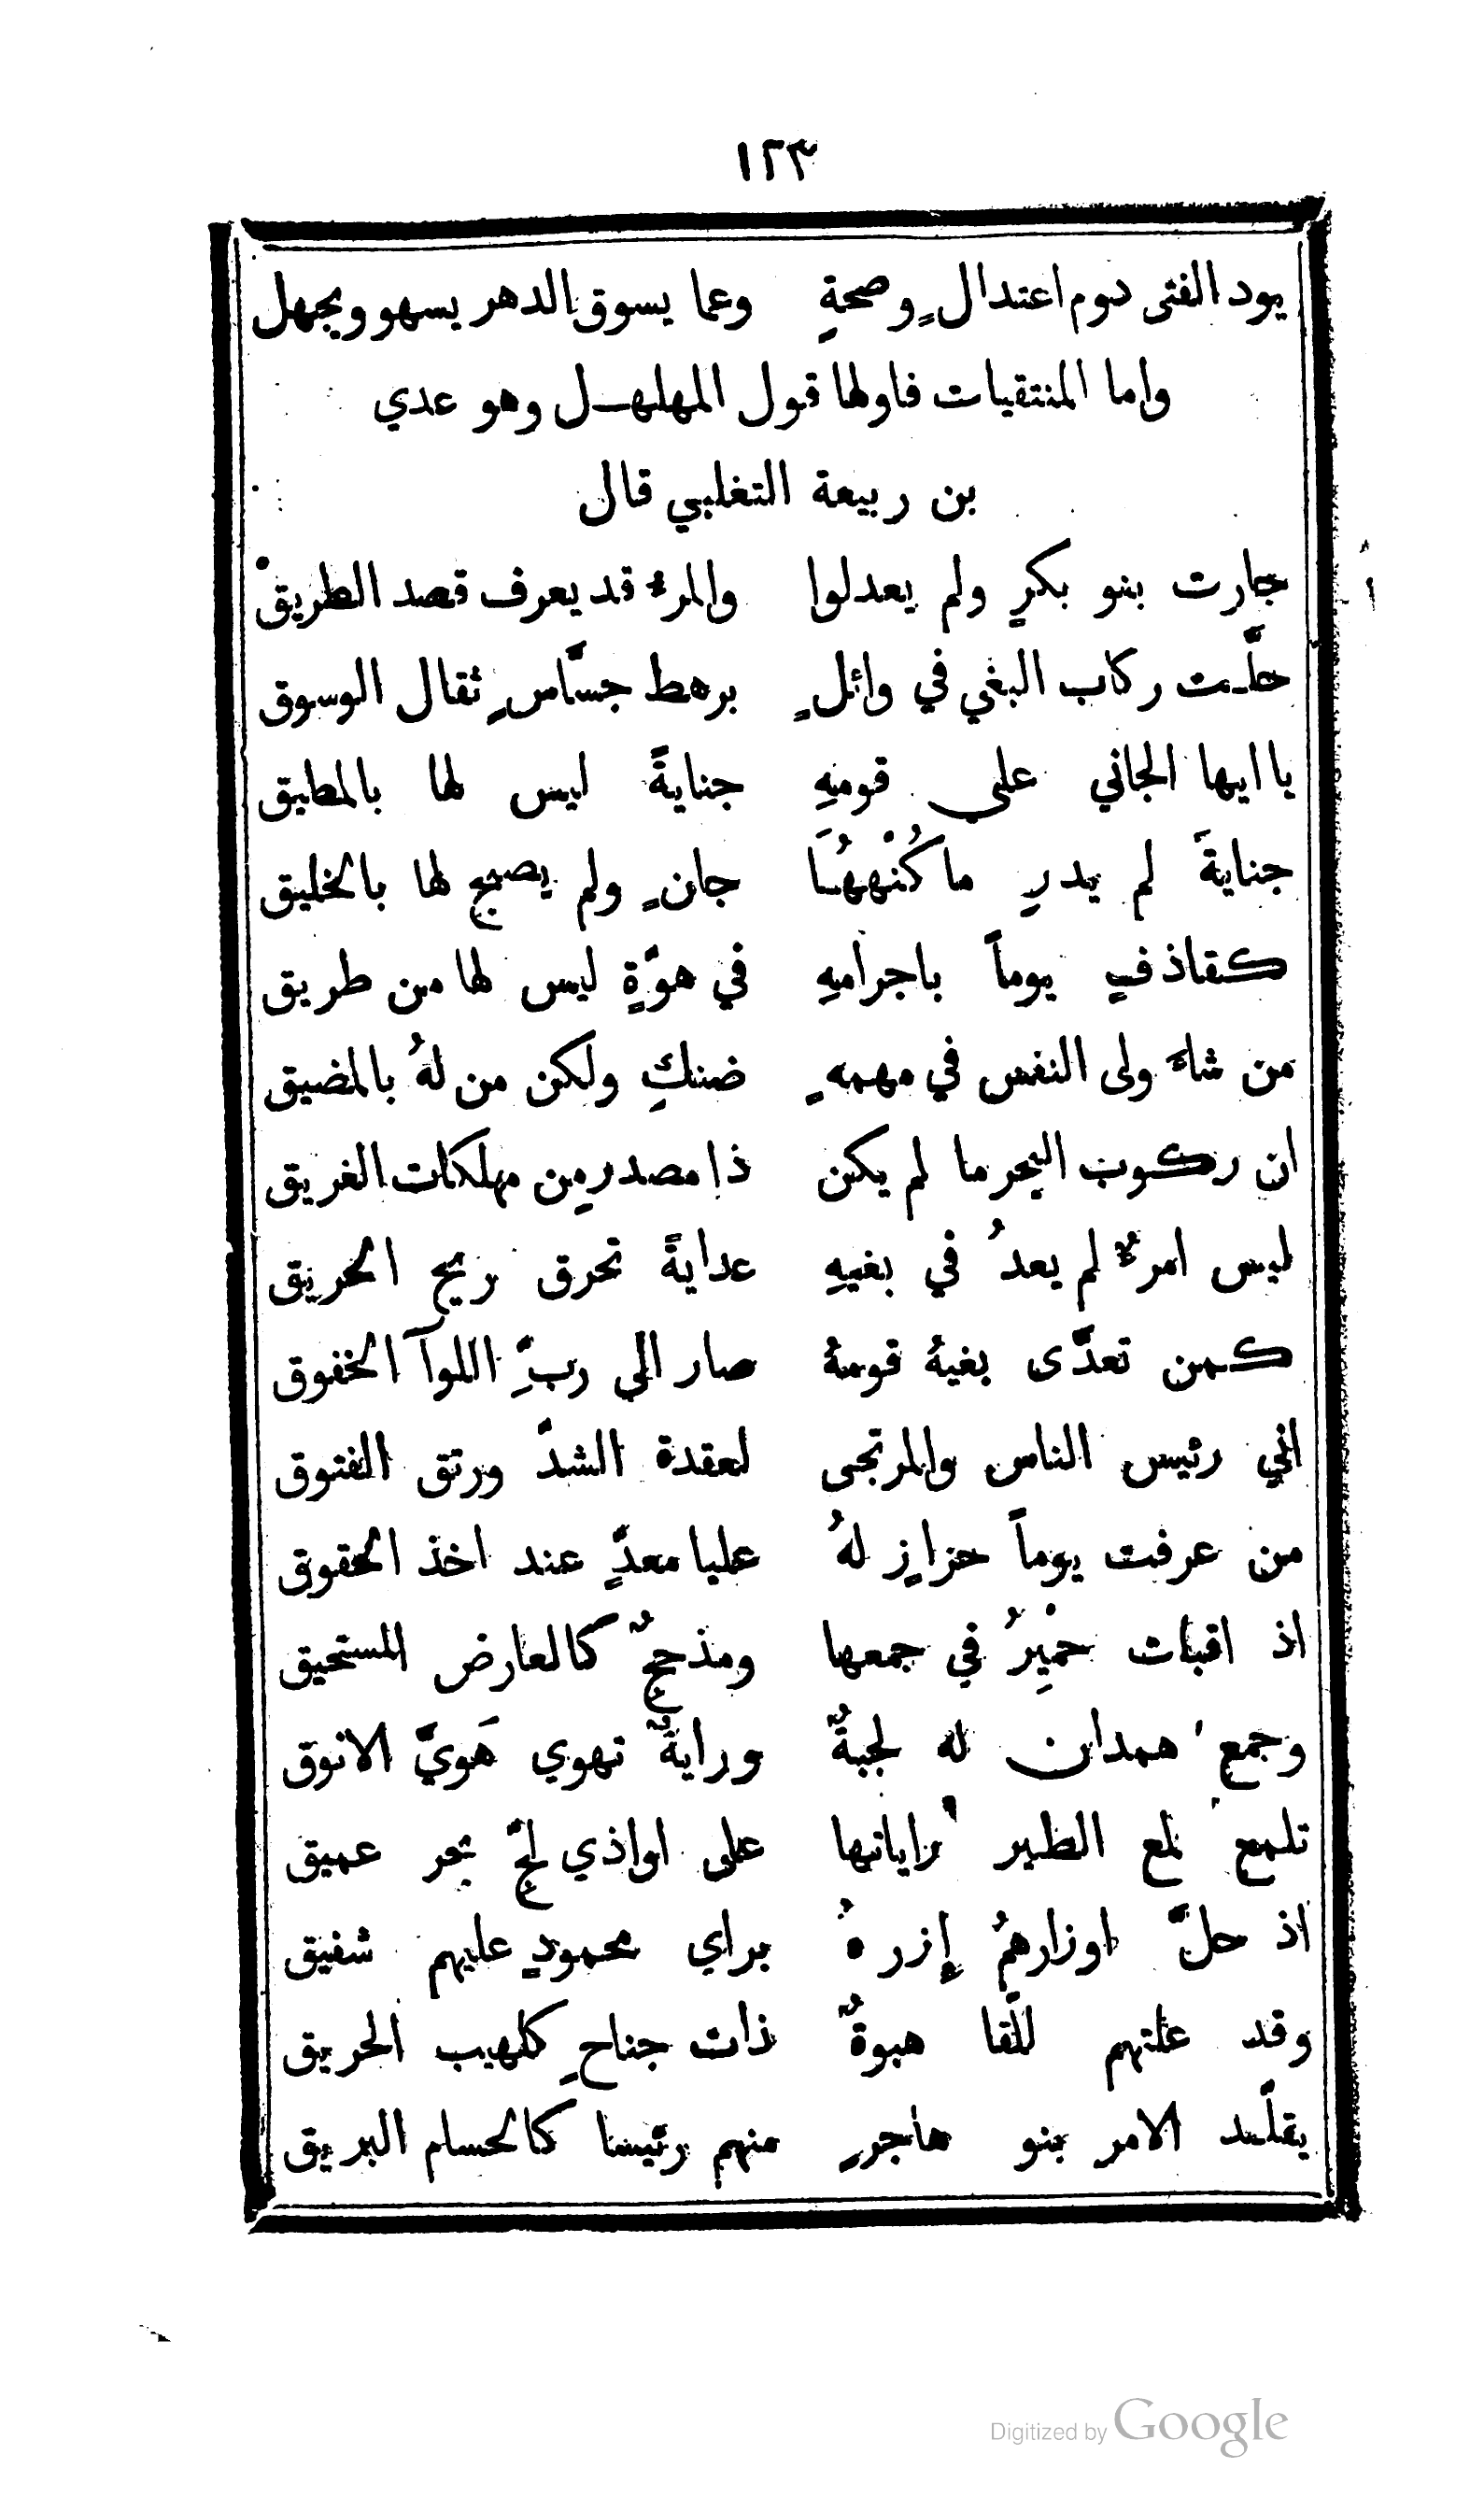 ١٢٣
يود الفتى دوم اعتدالٍ وصحةٍ وعما يسوق الدهر يسهو ويجهل
واما المنتقيات فاولها قول المهلهل وهو عدي
بن ربيعة التغلبي قال
جارت بنو بكرٍ ولم يعدلوا والمرء قد يعرف قصد الطريق
حلَّت ركاب البغي في وائلٍ برهط جسَّاسٍ ثقال الوسوق
يا ايها الجاني على قومهِ جنايةً ليس لها بالمطيق
جنايةً لم يدرِ ما كُنْهُهَا جانٍ ولم يصبح لها بالخليق
كقاذفٍ يوماً باجرامهِ في هوَّةٍ ليس لها من طريق
من شاءَ ولى النفس في مهمهٍ ضنكٍ ولكن من لهُ بالمضيق
ان ركوب البحر ما لم يكن ذا مصدرٍ من مهلكات الغريق
ليس امرءٌ لم يعدُ في بغيهِ عدايةً تخرق ريح الخريق
كمن تعدَّى بغيهُ قومهُ صار الى ربِّ اللوآ الخفوق
الي رئيس الناس والمرتجى لعقدة الشدّ ورتق الفتوق
من عرفت يوماً حزازٍ لهُ عليا معدٍّ عند اخذ الحقوق
اذ اقبلت حِمْيَرُ في جمعها ومذحجٌ كالعارض المستحيق
وجمع همدان له لجبةٌ ورايةٌ تهوي هَويَّ الانوق
تلمع لمع الطير راياتها على اواذي لجّ بحر عميق
اذ حلَّ اوزارهمُ إزرهُ براي محمودٍ عليهم شفيق
وقد علتهم للّقا هبوةٌ ذات جناحٍ كلهيب الحريق
يقلّد الامر بنو هاجرٍ منهم رئيسا كالحسام البريق
Digitized by Google